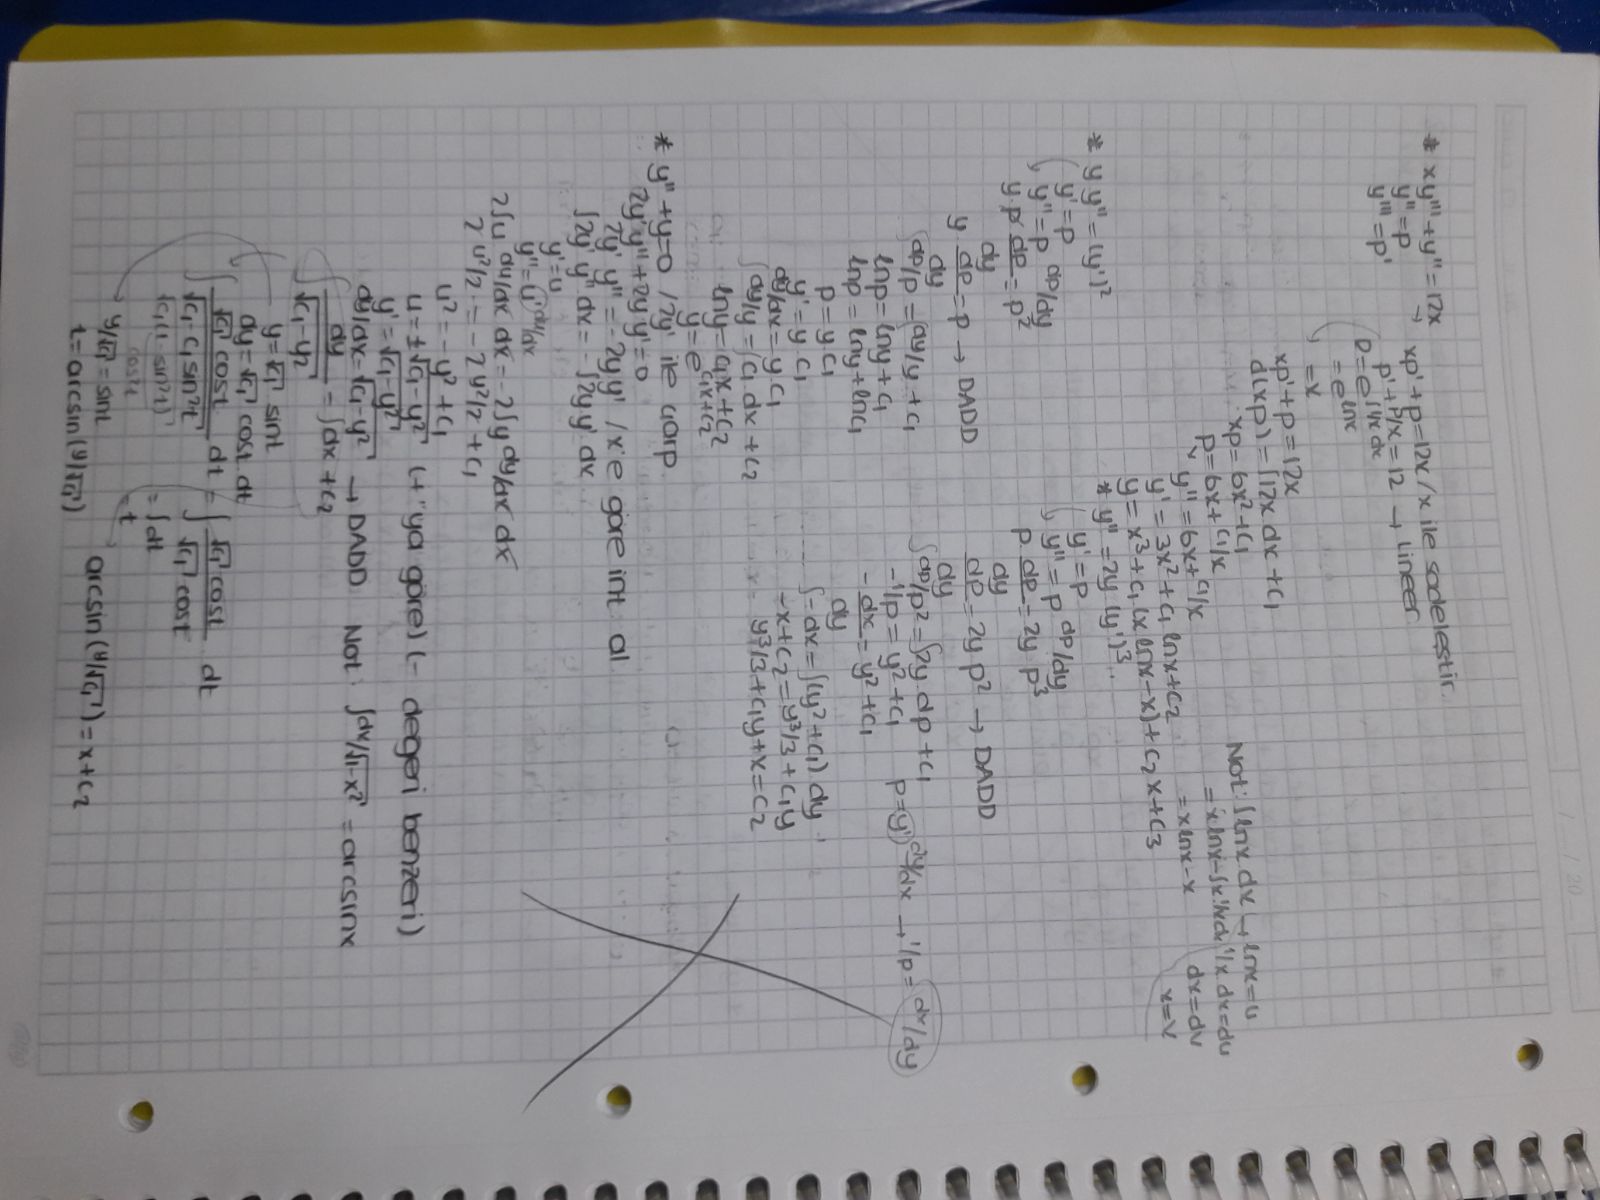 / / 20
* xy''' + y'' = 12x → xp' + p = 12x / x ile sadeleştir.
y'' = p
y''' = p'
p' + p/x = 12 → Lineer
p = e^∫1/x dx
= e^lnx
= x
xp' + p = 12x
d(xp) = ∫12x dx + c₁
xp = 6x² + c₁
p = 6x + c₁/x
y'' = 6x + c₁/x
y' = 3x² + c₁ lnx + c₂
y = x³ + c₁ (x lnx - x) + c₂x + c₃
Not: ∫lnx dx → lnx = u
= x lnx - ∫x 1/x dx 1/x dx = du
= x lnx - x dx = dv
x = v
* y y'' = (y')²
y' = p
y'' = p dp/dy
y.p dp/dy = p²
y dp/dy = p → DADD
∫dp/p = ∫dy/y + c₁
lnp = lny + c₁
lnp = lny + lnc₁
p = y.c₁
y' = y.c₁
dy/dx = y.c₁
∫dy/y = ∫c₁ dx + c₂
lny = c₁x + c₂
y = e^c₁x+c₂
* y'' = 2y (y')³
y' = p
y'' = p dp/dy
p. dp/dy = 2y p³
dp/dy = 2y p² → DADD
∫dp/p² = ∫2y dp + c₁
-1/p = y² + c₁ p = y' dy/dx → 1/p = dx/dy
- dx/dy = y² + c₁
∫-dx = ∫(y² + c₁) dy
-x + c₂ = y³/3 + c₁y
y³/3 + c₁y + x = c₂
* y'' + y = 0 / 2y' ile çarp
2y' y'' + 2y y' = 0
2y' y'' = -2y y' / x'e göre int al
∫2y' y'' dx = -∫2y y' dx
y' = u
y'' = u' du/dx
2∫u du/dx dx = -2∫y dy/dx dx
2 u²/2 = -2 y²/2 + c₁
u² = -y² + c₁
u = ±√c₁-y² (+'ya göre) (- değeri benzeri)
y' = √c₁-y²
dy/dx = √c₁-y² → DADD Not: ∫dx/√1-x² = arcsinx
∫ dy/√c₁-y² = ∫dx + c₂
y = √c₁ sint
dy = √c₁ cost dt
∫ √c₁ cost/√c₁-c₁sin²t dt = ∫ √c₁ cost/√c₁ cost dt
√c₁(1-sin²t) = ∫dt
cos²t = t
y/√c₁ = sint
t = arcsin(y/√c₁)
arcsin(y/√c₁) = x + c₂